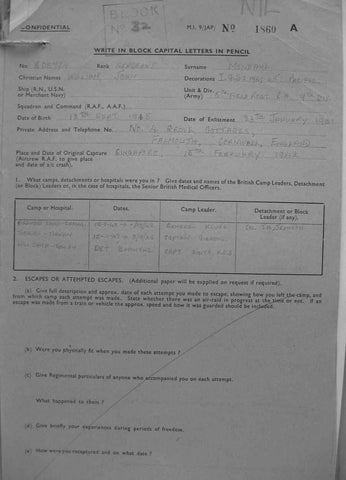 NIL
CONFIDENTIAL
BLOCK
Nº 32
M.I. 9/JAP/ Nº 1860 A
WRITE IN BLOCK CAPITAL LETTERS IN PENCIL
No. Rank SERGEANT Surname
Christian Names WILLIAM JOHN Decorations
Ship (R.N., U.S.N.
or Merchant Navy)
Unit & Div.
(Army)
Squadron and Command (R.A.F., A.A.F.)
Date of Birth Date of Enlistment JANUARY
Private Address and Telephone No. No 4 COTTAGES,
FALMOUTH, CORNWALL, ENGLAND
Place and Date of Original Capture SINGAPORE, 15TH FEBRUARY 1942
(Aircrew R.A.F. to give place
and date of a/c crash).
1. What camps, detachments or hospitals were you in ? Give dates and names of the British Camp Leaders, Detachment
(or Block) Leaders or, in the case of hospitals, the Senior British Medical Officers.
Camp or Hospital. Dates. Camp Leader. Detachment or Block
Leader (if any).
GENERAL
CAPTAIN
CAPT
2. ESCAPES OR ATTEMPTED ESCAPES. (Additional paper will be supplied on request if required).
(a) Give full description and approx. date of each attempt you made to escape, showing how you left the camp, and
from which camp each attempt was made. State whether there was an air-raid in progress at the time or not. If an
escape was made from a train or vehicle the approx. speed and how it was guarded should be included.
(b) Were you physically fit when you made these attempts ?
(c) Give Regimental particulars of anyone who accompanied you on each attempt.
What happened to them ?
(d) Give briefly your experiences during periods of freedom.
(e) How were you recaptured and on what date ?